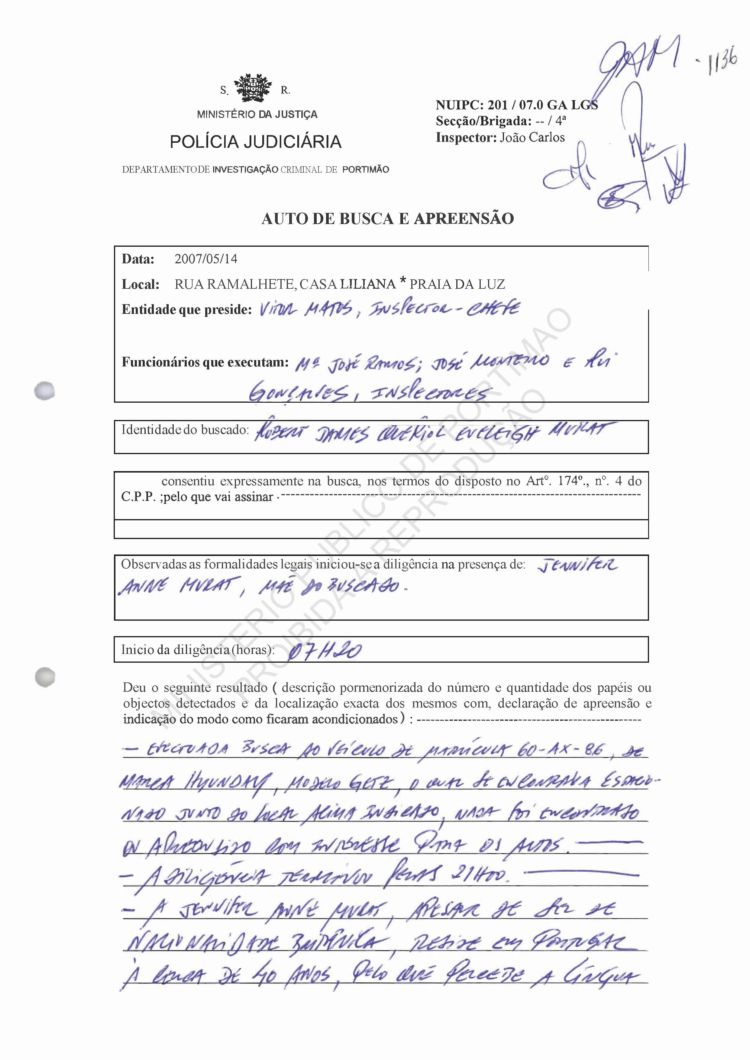 1136
S. R.
MINISTÉRIO DA JUSTIÇA
POLÍCIA JUDICIÁRIA
DEPARTAMENTO DE INVESTIGAÇÃO CRIMINAL DE PORTIMÃO
NUIPC: 201 / 07.0 GA LGS
Secção/Brigada: -- / 4ª
Inspector: João Carlos
AUTO DE BUSCA E APREENSÃO
Data: 2007/05/14
Local: RUA RAMALHETE, CASA LILIANA * PRAIA DA LUZ
Entidade que preside: VITOR MATOS, INSPECTOR-CHEFE
Funcionários que executam: Mª JOSÉ RAMOS; JOSÉ MONTEIRO E RUI
GONÇALVES, INSPECTORES
Identidade do buscado: ROBERT JAMES QUERIOL EVELEIGH MURAT
consentiu expressamente na busca, nos termos do disposto no Artº. 174º., nº. 4 do
C.P.P. ;pelo que vai assinar .-----
Observadas as formalidades legais iniciou-se a diligência na presença de: JENNIFER
ANNE MURAT, MÃE DO BUSCADO.
Inicio da diligência (horas): 07H20
Deu o seguinte resultado ( descrição pormenorizada do número e quantidade dos papéis ou
objectos detectados e da localização exacta dos mesmos com, declaração de apreensão e
indicação do modo como ficaram acondicionados ) : -----
— EFECTUADA BUSCA AO VEÍCULO DE MATRÍCULA 60-AX-86, DE
MARCA HYUNDAY, MODELO GETZ, O QUAL SE ENCONTRAVA ESTACIO-
NADO JUNTO AO LOCAL ACIMA INDICADO, NADA FOI ENCONTRADO
OU APREENDIDO COM INTERESSE PARA OS AUTOS. —
— A DILIGÊNCIA TERMINOU PELAS 21H00. —
— A JENNIFER ANNE MURAT, APESAR DE SER DE
NACIONALIDADE BRITÂNICA, RESIDE EM PORTUGAL
À CERCA DE 40 ANOS, PELO QUE PERCEBE A LÍNGUA
MINISTÉRIO PUBLICO DE PORTIMAO
PROIBIDA A REPRODUÇÃO